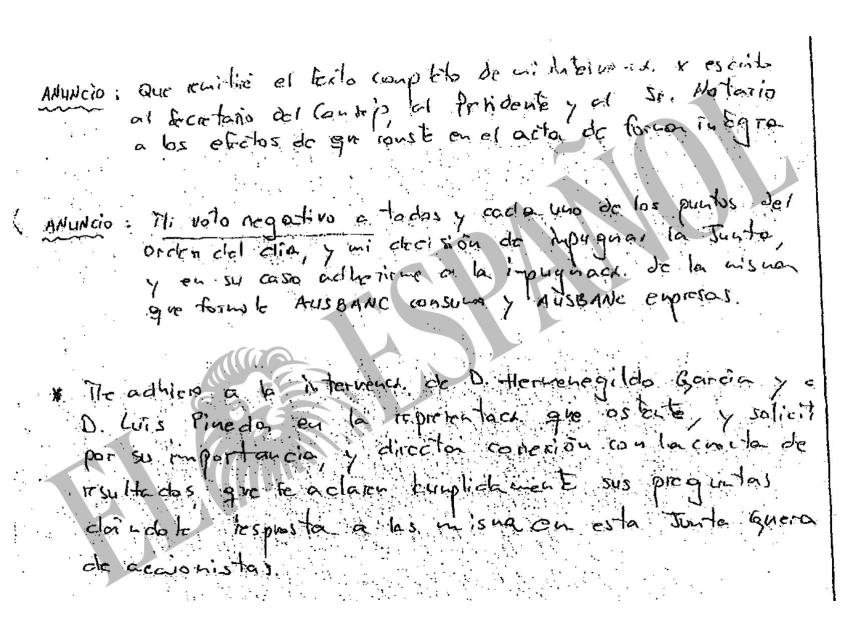 ANUNCIO: Que remitiré el texto completo de mi intervenc. x escrito
al Secretario del Consejo, al Presidente y al Sr. Notario
a los efectos de que conste en el acta de forma integra
ANUNCIO: Mi voto negativo a todos y cada uno de los puntos del
orden del día, y mi decisión de impugnar la Junta,
y en su caso adherirme a la impugnac. de la misma
que formule AUSBANC consumo y AUSBANC empresas.
* Me adhiero a la intervenc. de D. Hermenegildo García y a
D. Luis Pineda en la representac. que ostente, y solicit
por su importancia, y directa conexión con la cuenta de
resultados, que se aclaren cumplidamente sus preguntas
dándole respuesta a las misma en esta Junta Genera
de accionistas.
EL ESPAÑOL